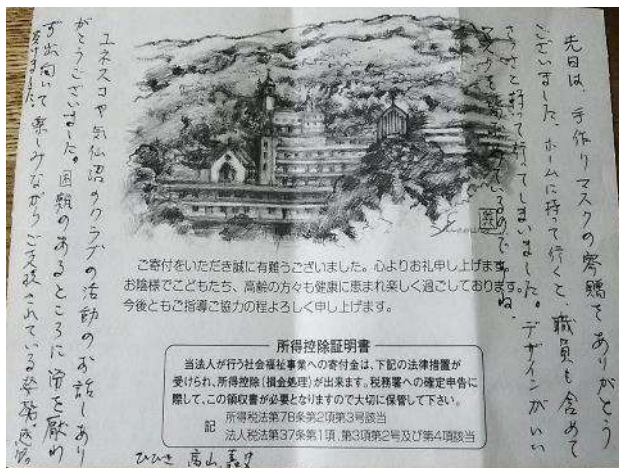 先日は、手作りマスクの寄贈をありがとう
ございました。ホームに持って行くと、職員も含めて
さっさと持って行ってしまいました。デザインがいい
マスクを
ですね。
ご寄付をいただき誠に有難うございました。心よりお礼申し上げます。
お陰様でこどもたち、高齢の方々も健康に恵まれ楽しく過ごしております。
今後ともご指導ご協力の程よろしく申し上げます。
所得控除証明書
当法人が行う社会福祉事業への寄付金は、下記の法律措置が
受けられ、所得控除(損金処理)が出来ます。税務署への確定申告に
際して、この領収書が必要となりますので大切に保管して下さい。
記
所得税法第78条第2項第3号該当
法人税法第37条第1項、第3項第2号及び第4項該当
ユネスコや気仙沼のクラブの活動のお話しあり
がとうございました。困難のあるところに労を厭わ
ず出向いて楽しみながらご支援されている
受けました。
ひびき 高山